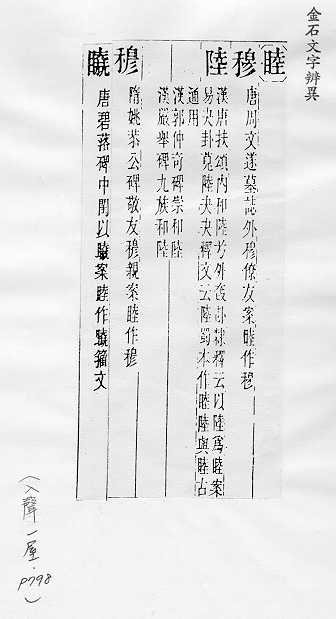 金石文字辨異
睦
穆
唐周文遂墓誌外穆僚友案睦作穆
陸
漢唐扶頌內和陸兮外奞卦隸釋云以陸爲睦案
易夬卦莧陸夬夬釋文云陸蜀本作睦陸與睦古
通用
漢郭仲奇碑崇和陸
漢嚴舉碑九族和陸
穆
隋姚恭公碑敬友穆親案睦作穆
唐碧落碑中閨以 案睦作 籀文
(入聲一屋.
P798)